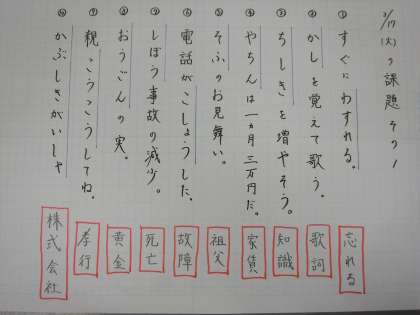 2/17(火)の課題 その1
① すぐにわすれる。 忘れる
② かしを覚えて歌う。 歌詞
③ ちしきを増やそう。 知識
④ やちんは一ヵ月三万円だ。 家賃
⑤ そふのお見舞い。 祖父
⑥ 電話がこしょうした。 故障
⑦ しぼう事故の減少。 死亡
⑧ おうごんの実。 黄金
⑨ 親こうこうしてね。 孝行
⑩ かぶしきがいしゃ 株式会社